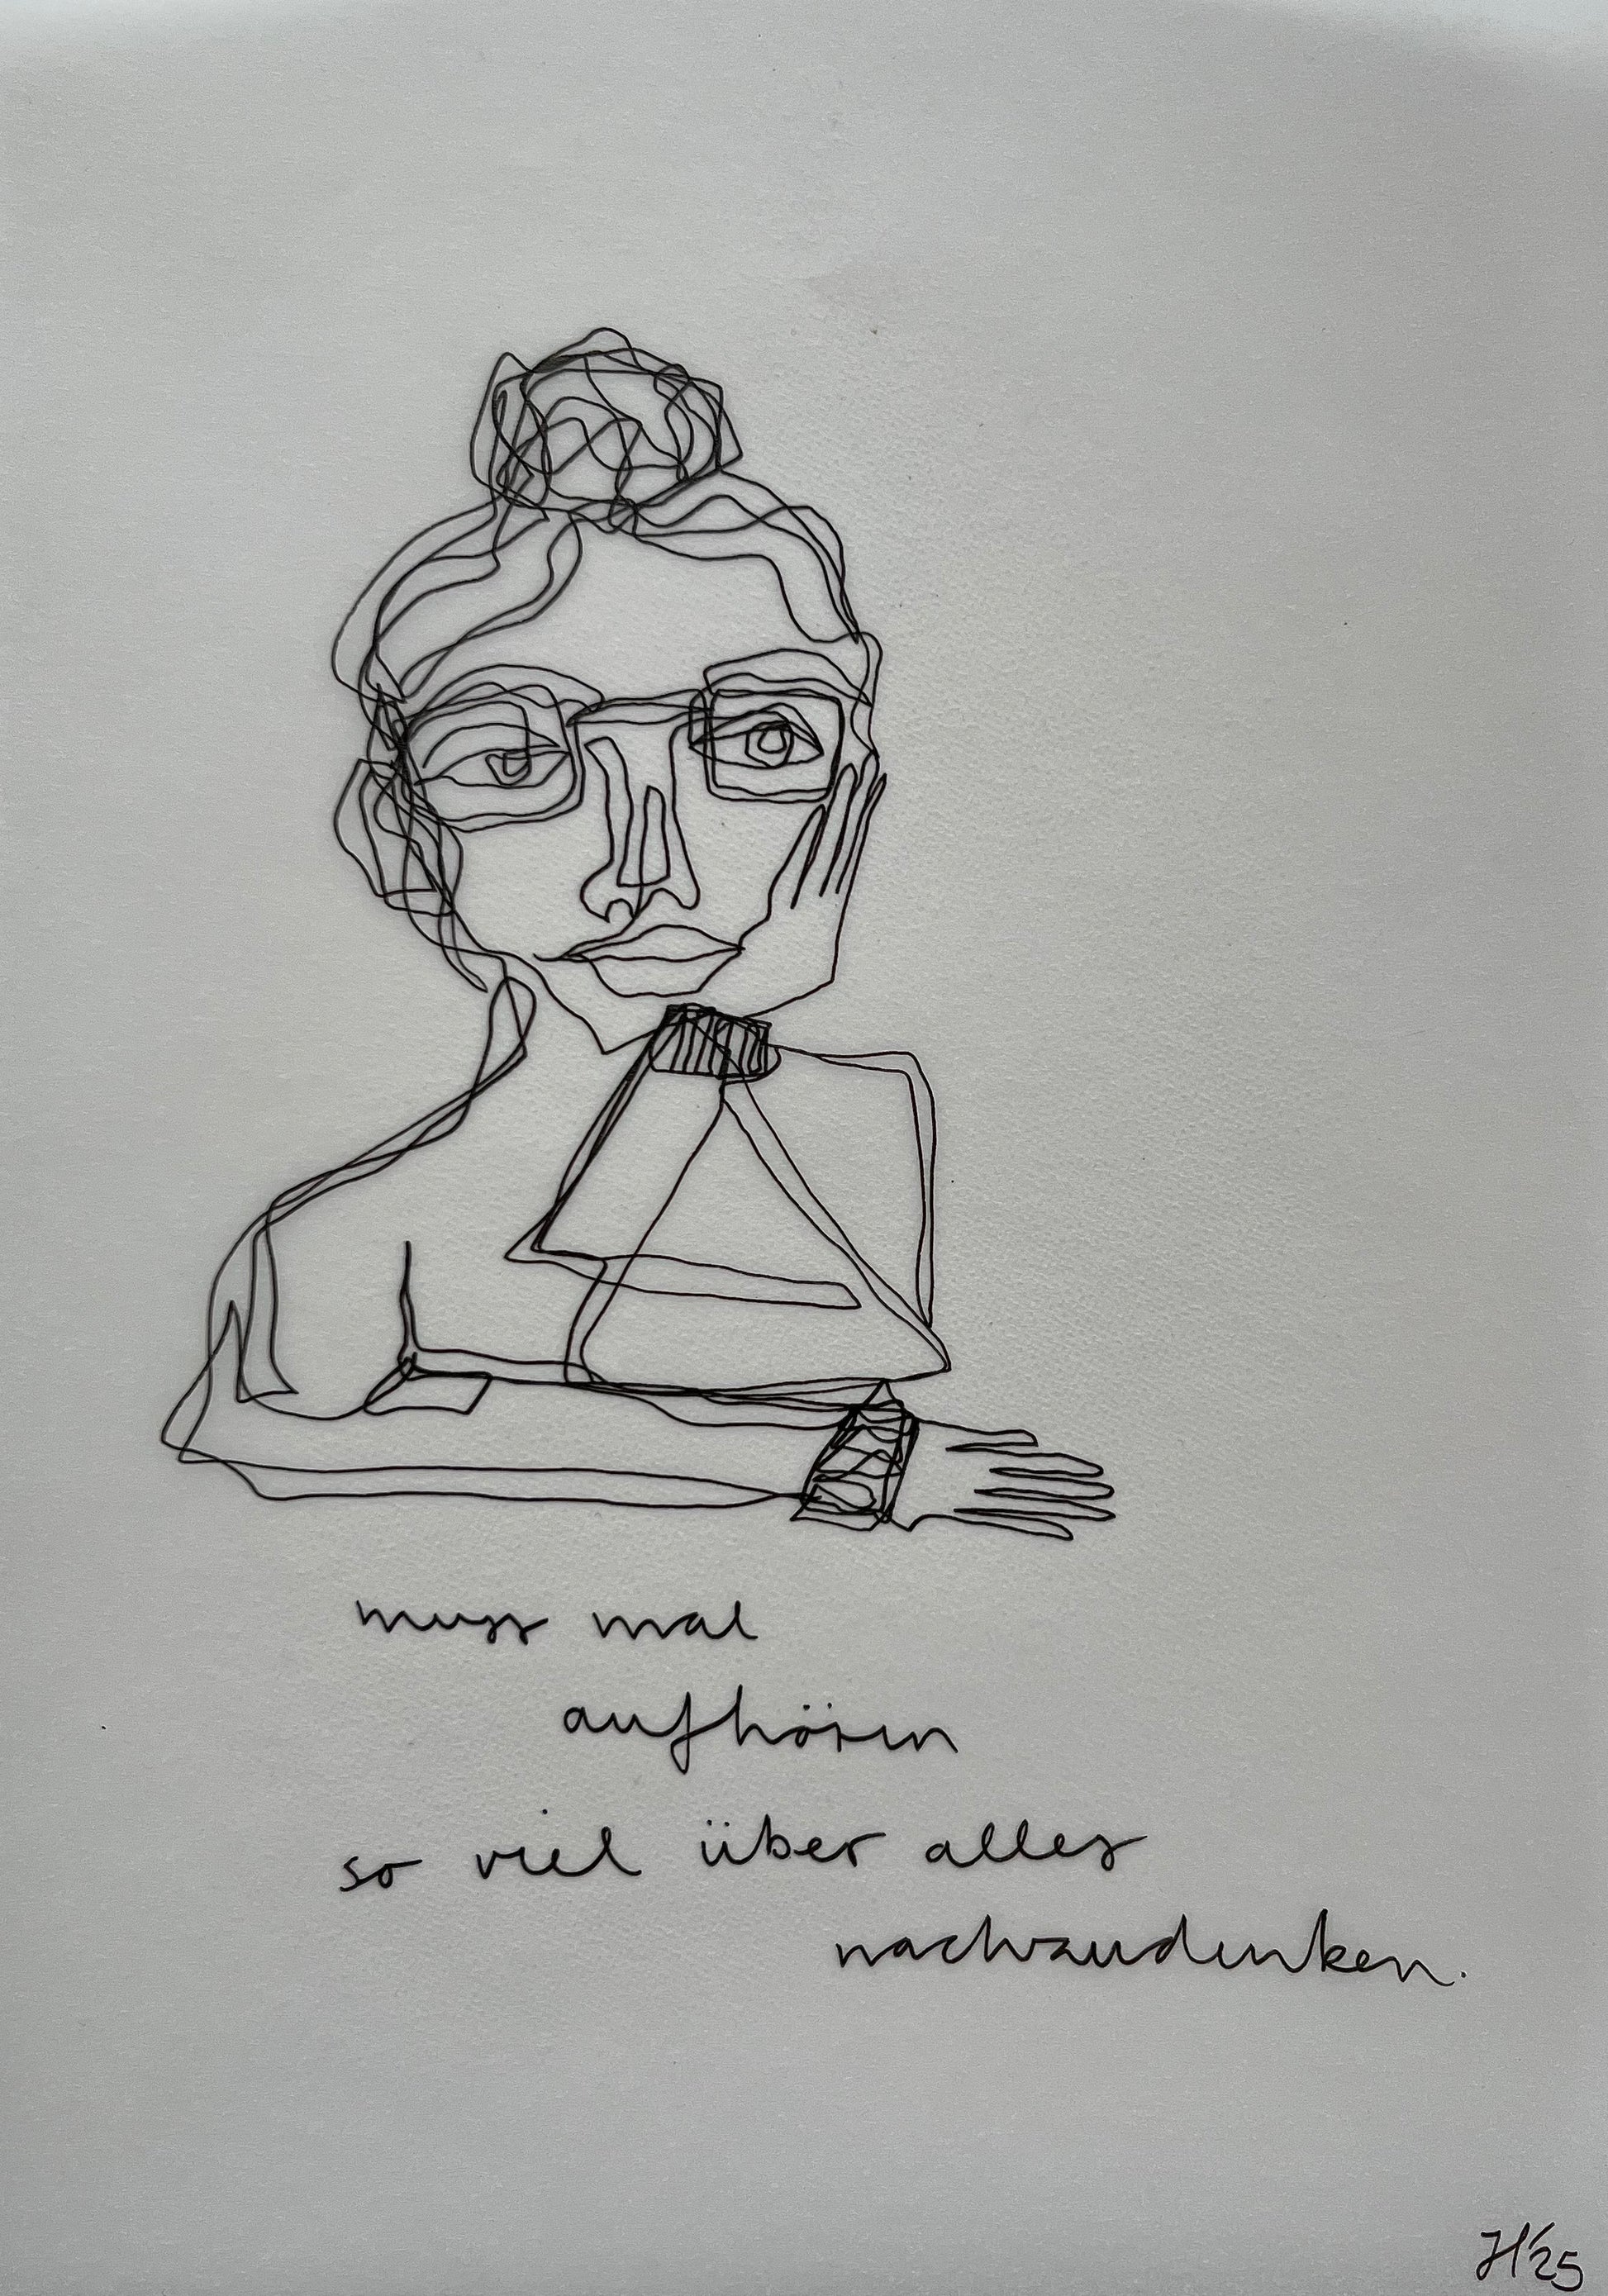 muss mal
aufhören
so viel über alles
nachzudenken.
H'25